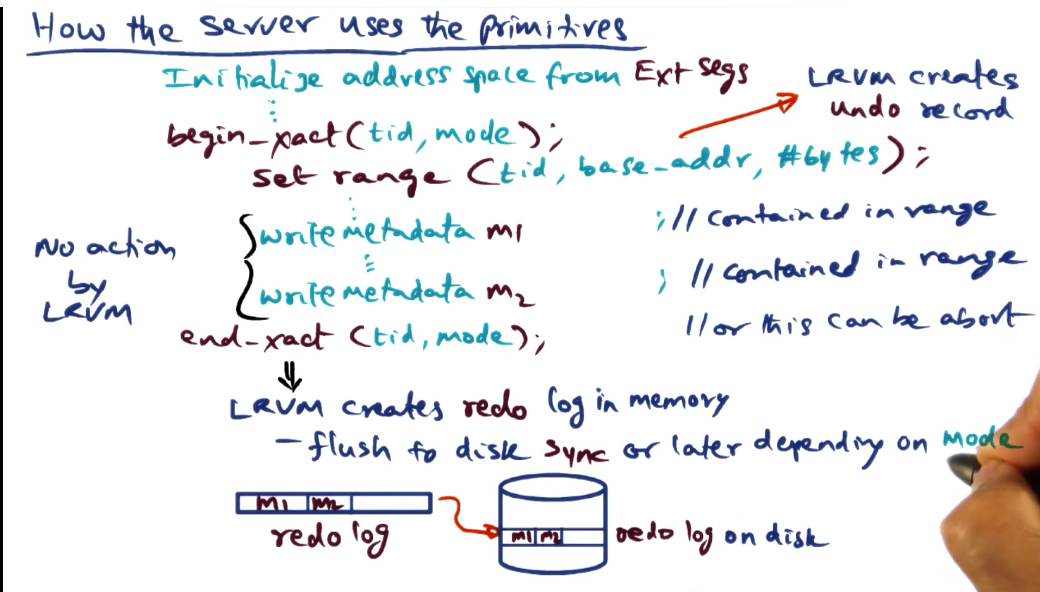 How the server uses the primitives
Initialize address space from Ext segs
LRVM creates
undo record
begin_xact(tid, mode);
set range (tid, base_addr, #bytes);
No action
by
LRVM
write metadata m1 ;// contained in range
write metadata m2 ; // contained in range
end_xact (tid, mode); // or this can be abort
LRVM creates redo log in memory
- flush to disk sync or later depending on mode
m1 m2
redo log
m1 m2
redo log on disk